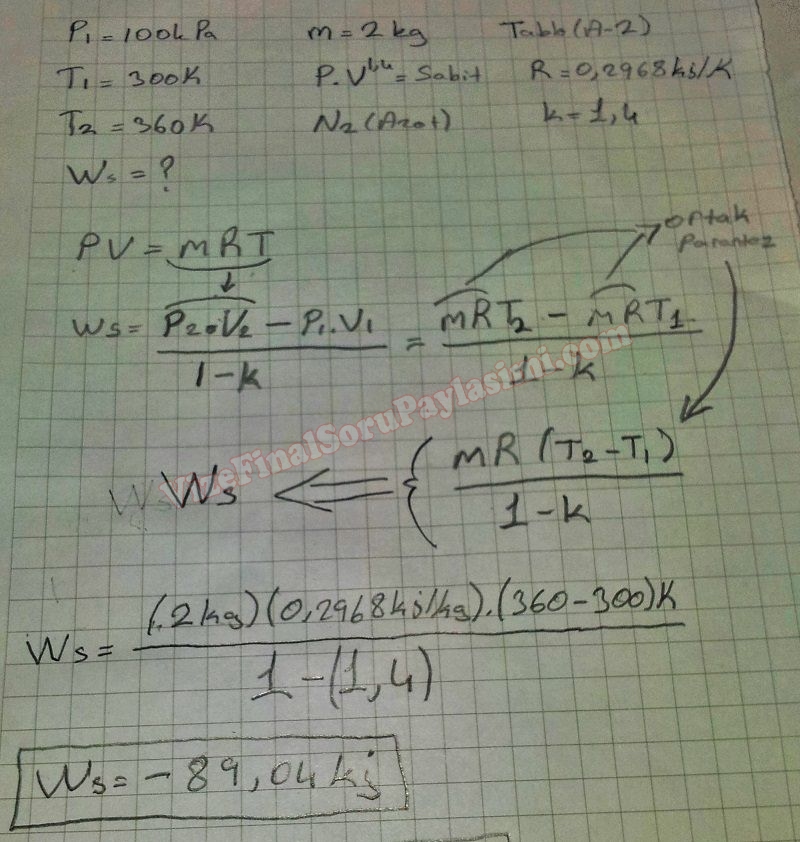 P₁ = 100kPa m = 2 kg Tablo (A-2)
T₁ = 300K P.V¹·⁴ = Sabit R = 0,2968 kj/K
T₂ = 360K N₂ (Azot) k = 1,4
Ws = ?
PV = mRT
ortak
parantez
Ws = (P₂.V₂ - P₁.V₁) / (1-k) = (mRT₂ - mRT₁) / (1-k)
VizeFinalSoruPaylasimi.com
Ws ⇐ { mR (T₂-T₁) / (1-k)
Ws = (2 kg)(0,2968 kj/kg).(360-300)K / 1-(1,4)
Ws = -89,04 kj